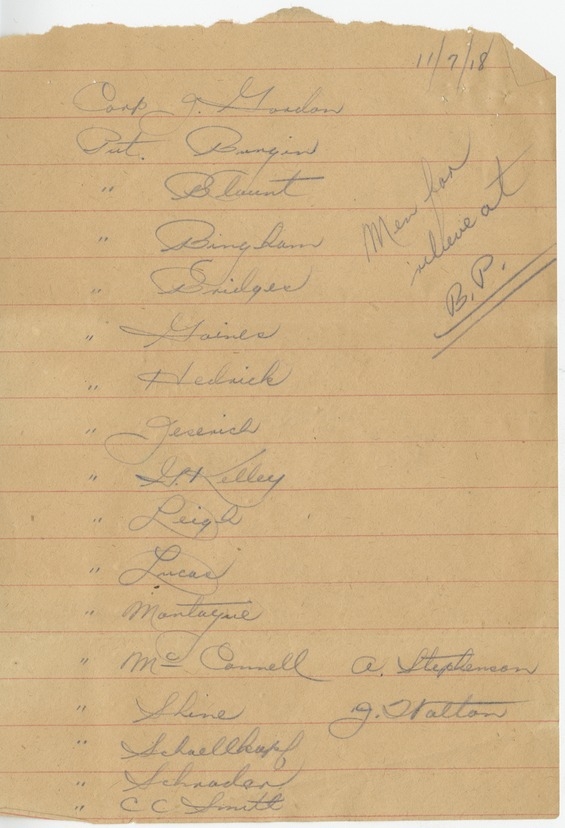 11/7/18
Corp J. Gordon
Pvt. Burgin
" Blount
" Bingham
" Bridges
Men for
relieve at
B.P.
" Gaines
" Hedrick
" Jeserich
" G. Kelley
" Leigh
" Lucas
" Montague
" Mc Connell A. Stephenson
" Shine J. Walton
" Schoellkopf
" Schrader
" C C Smith